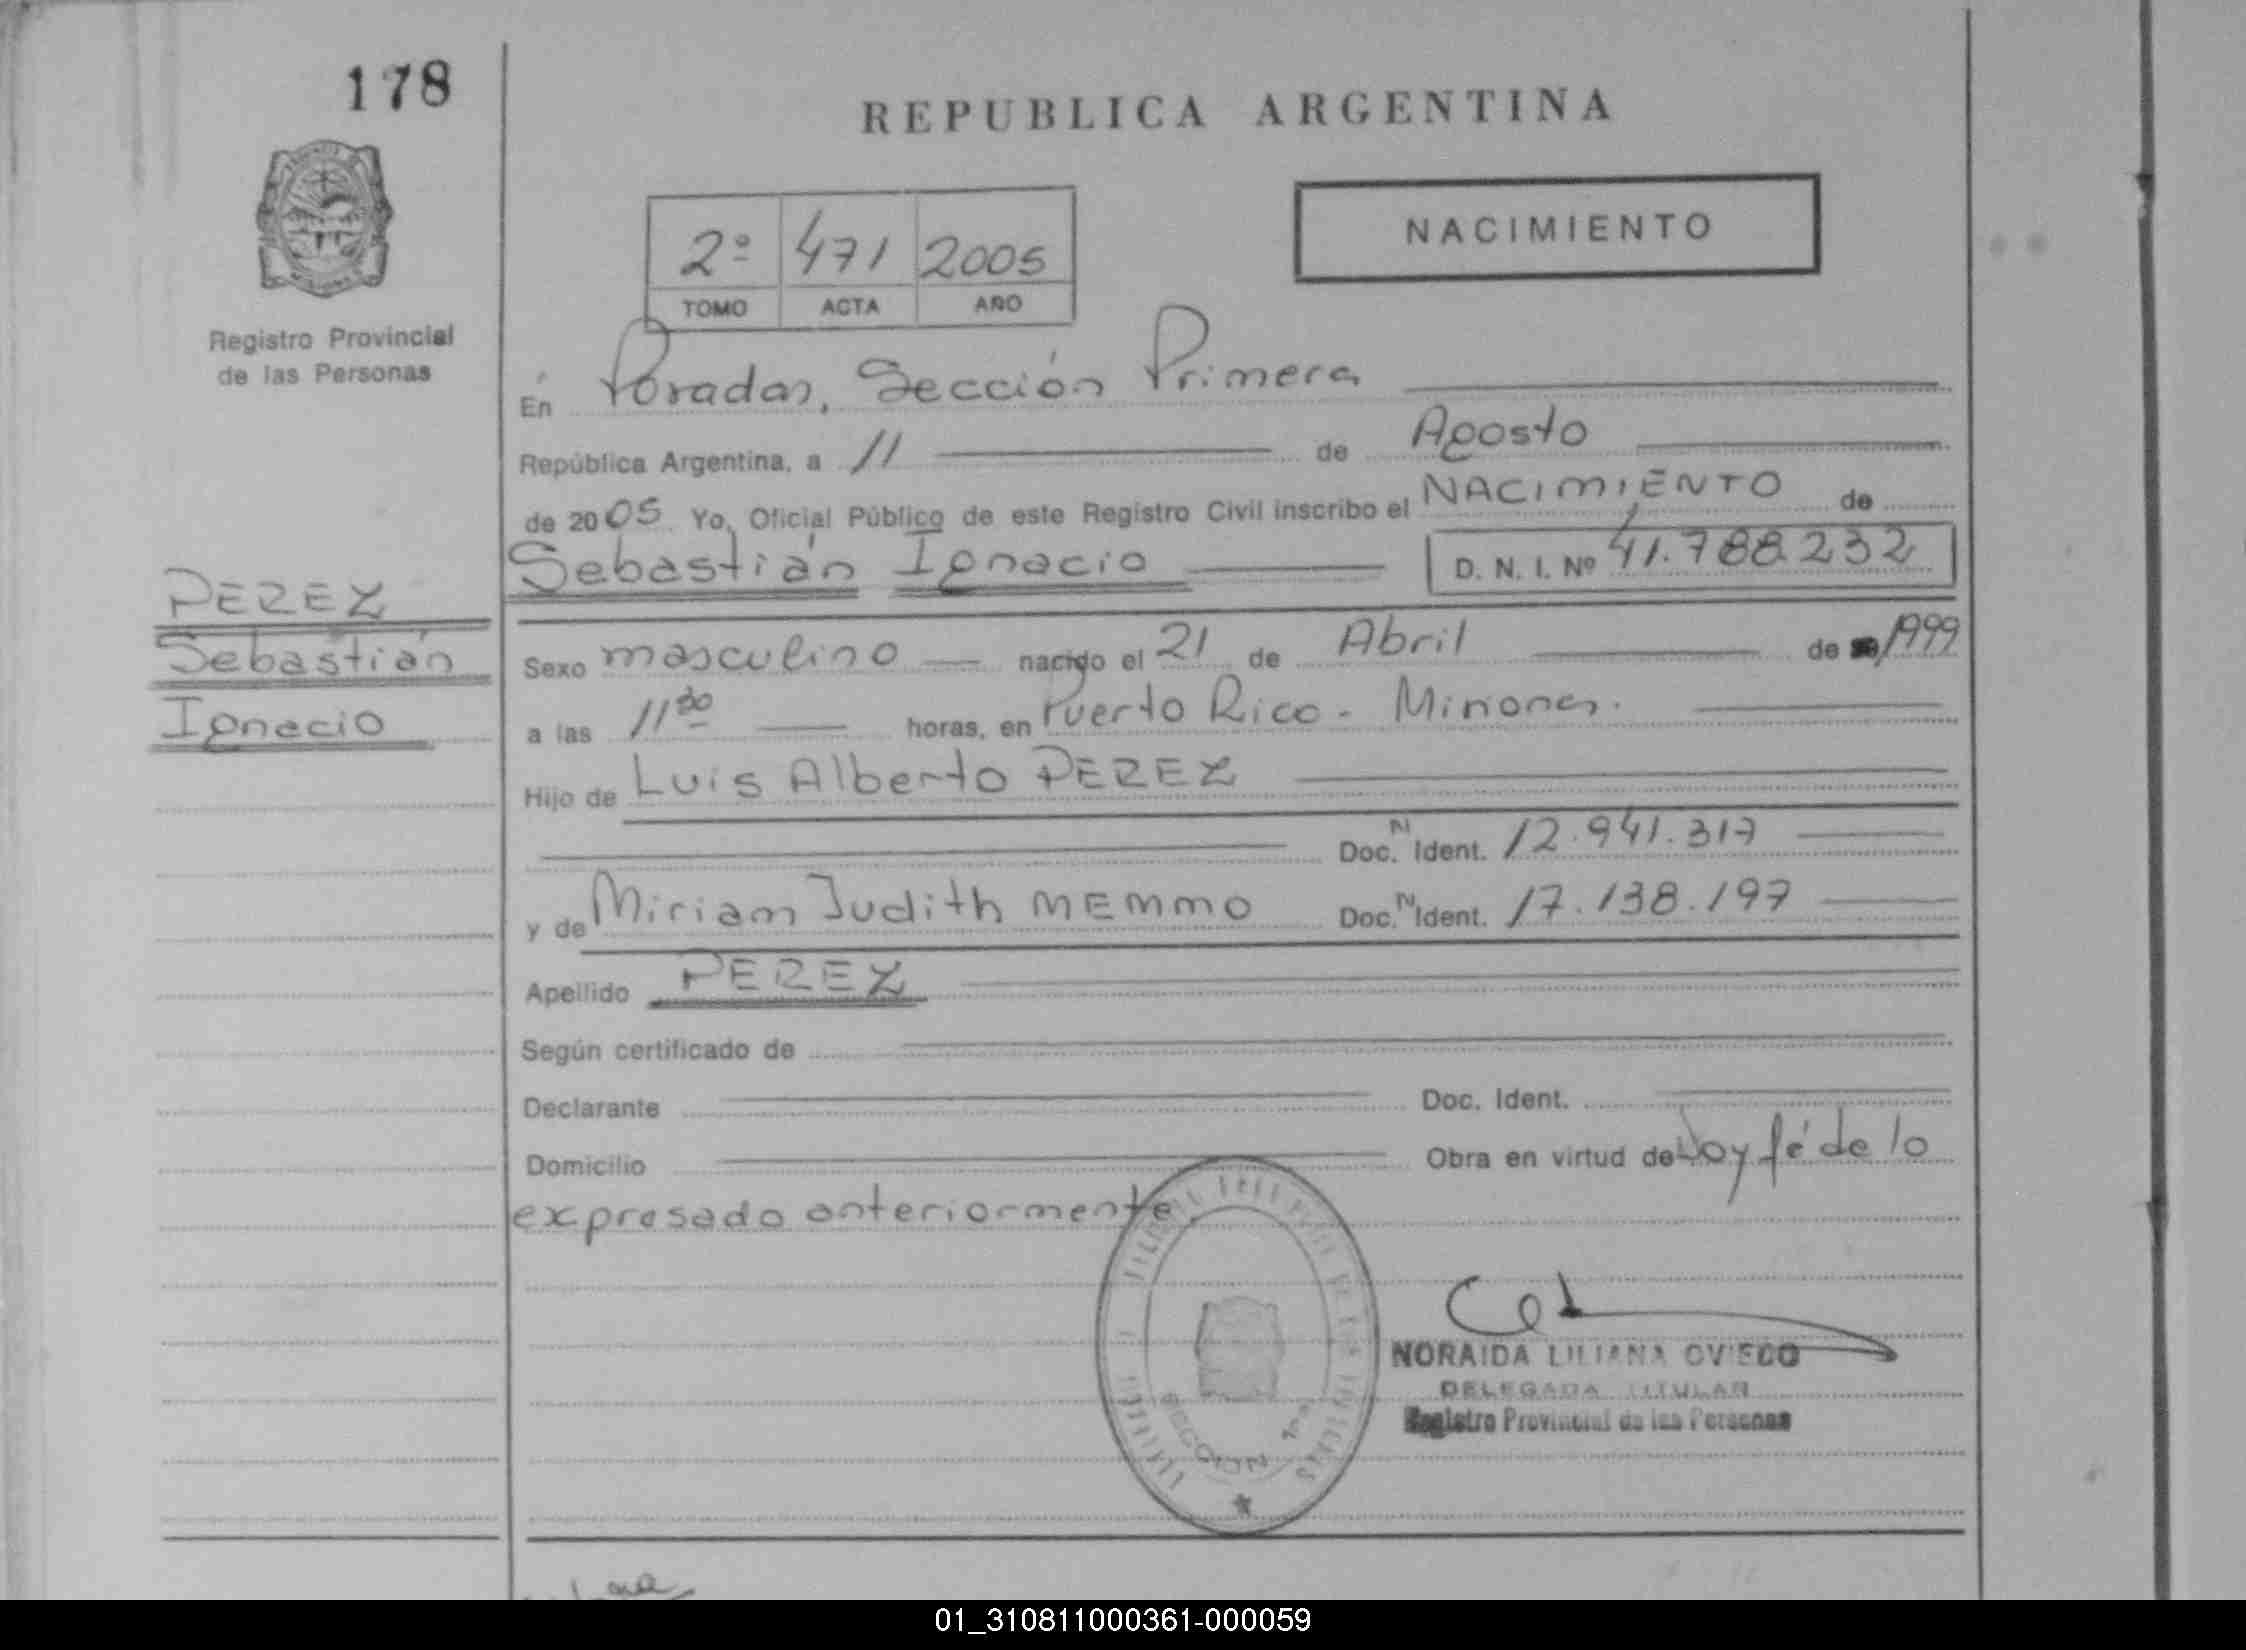 178
REPUBLICA ARGENTINA
NACIMIENTO
2º 471 2005
TOMO ACTA AÑO
Registro Provincial
de las Personas
En Posadas, Sección Primera
República Argentina, a 11 de Agosto
de 2005 Yo, Oficial Público de este Registro Civil inscribo el NACIMIENTO de
Sebastián Ignacio D. N. I. Nº 41.788.232
PEREZ
Sebastián
Ignacio
Sexo masculino nacido el 21 de Abril de 1999
a las 11 30 horas, en Puerto Rico - Misiones.
Hijo de Luis Alberto PEREZ
Doc. N Ident. 12.941.317
y de Miriam Judith MEMMO Doc. N Ident. 17.138.197
Apellido PEREZ
Según certificado de
Declarante Doc. Ident.
Domicilio Obra en virtud de Doy fé de lo
expresado anteriormente
SECCION 1ra
NORAIDA LILIANA OVIEDO
DELEGADA TITULAR
Registro Provincial de las Personas
01_310811000361-000059